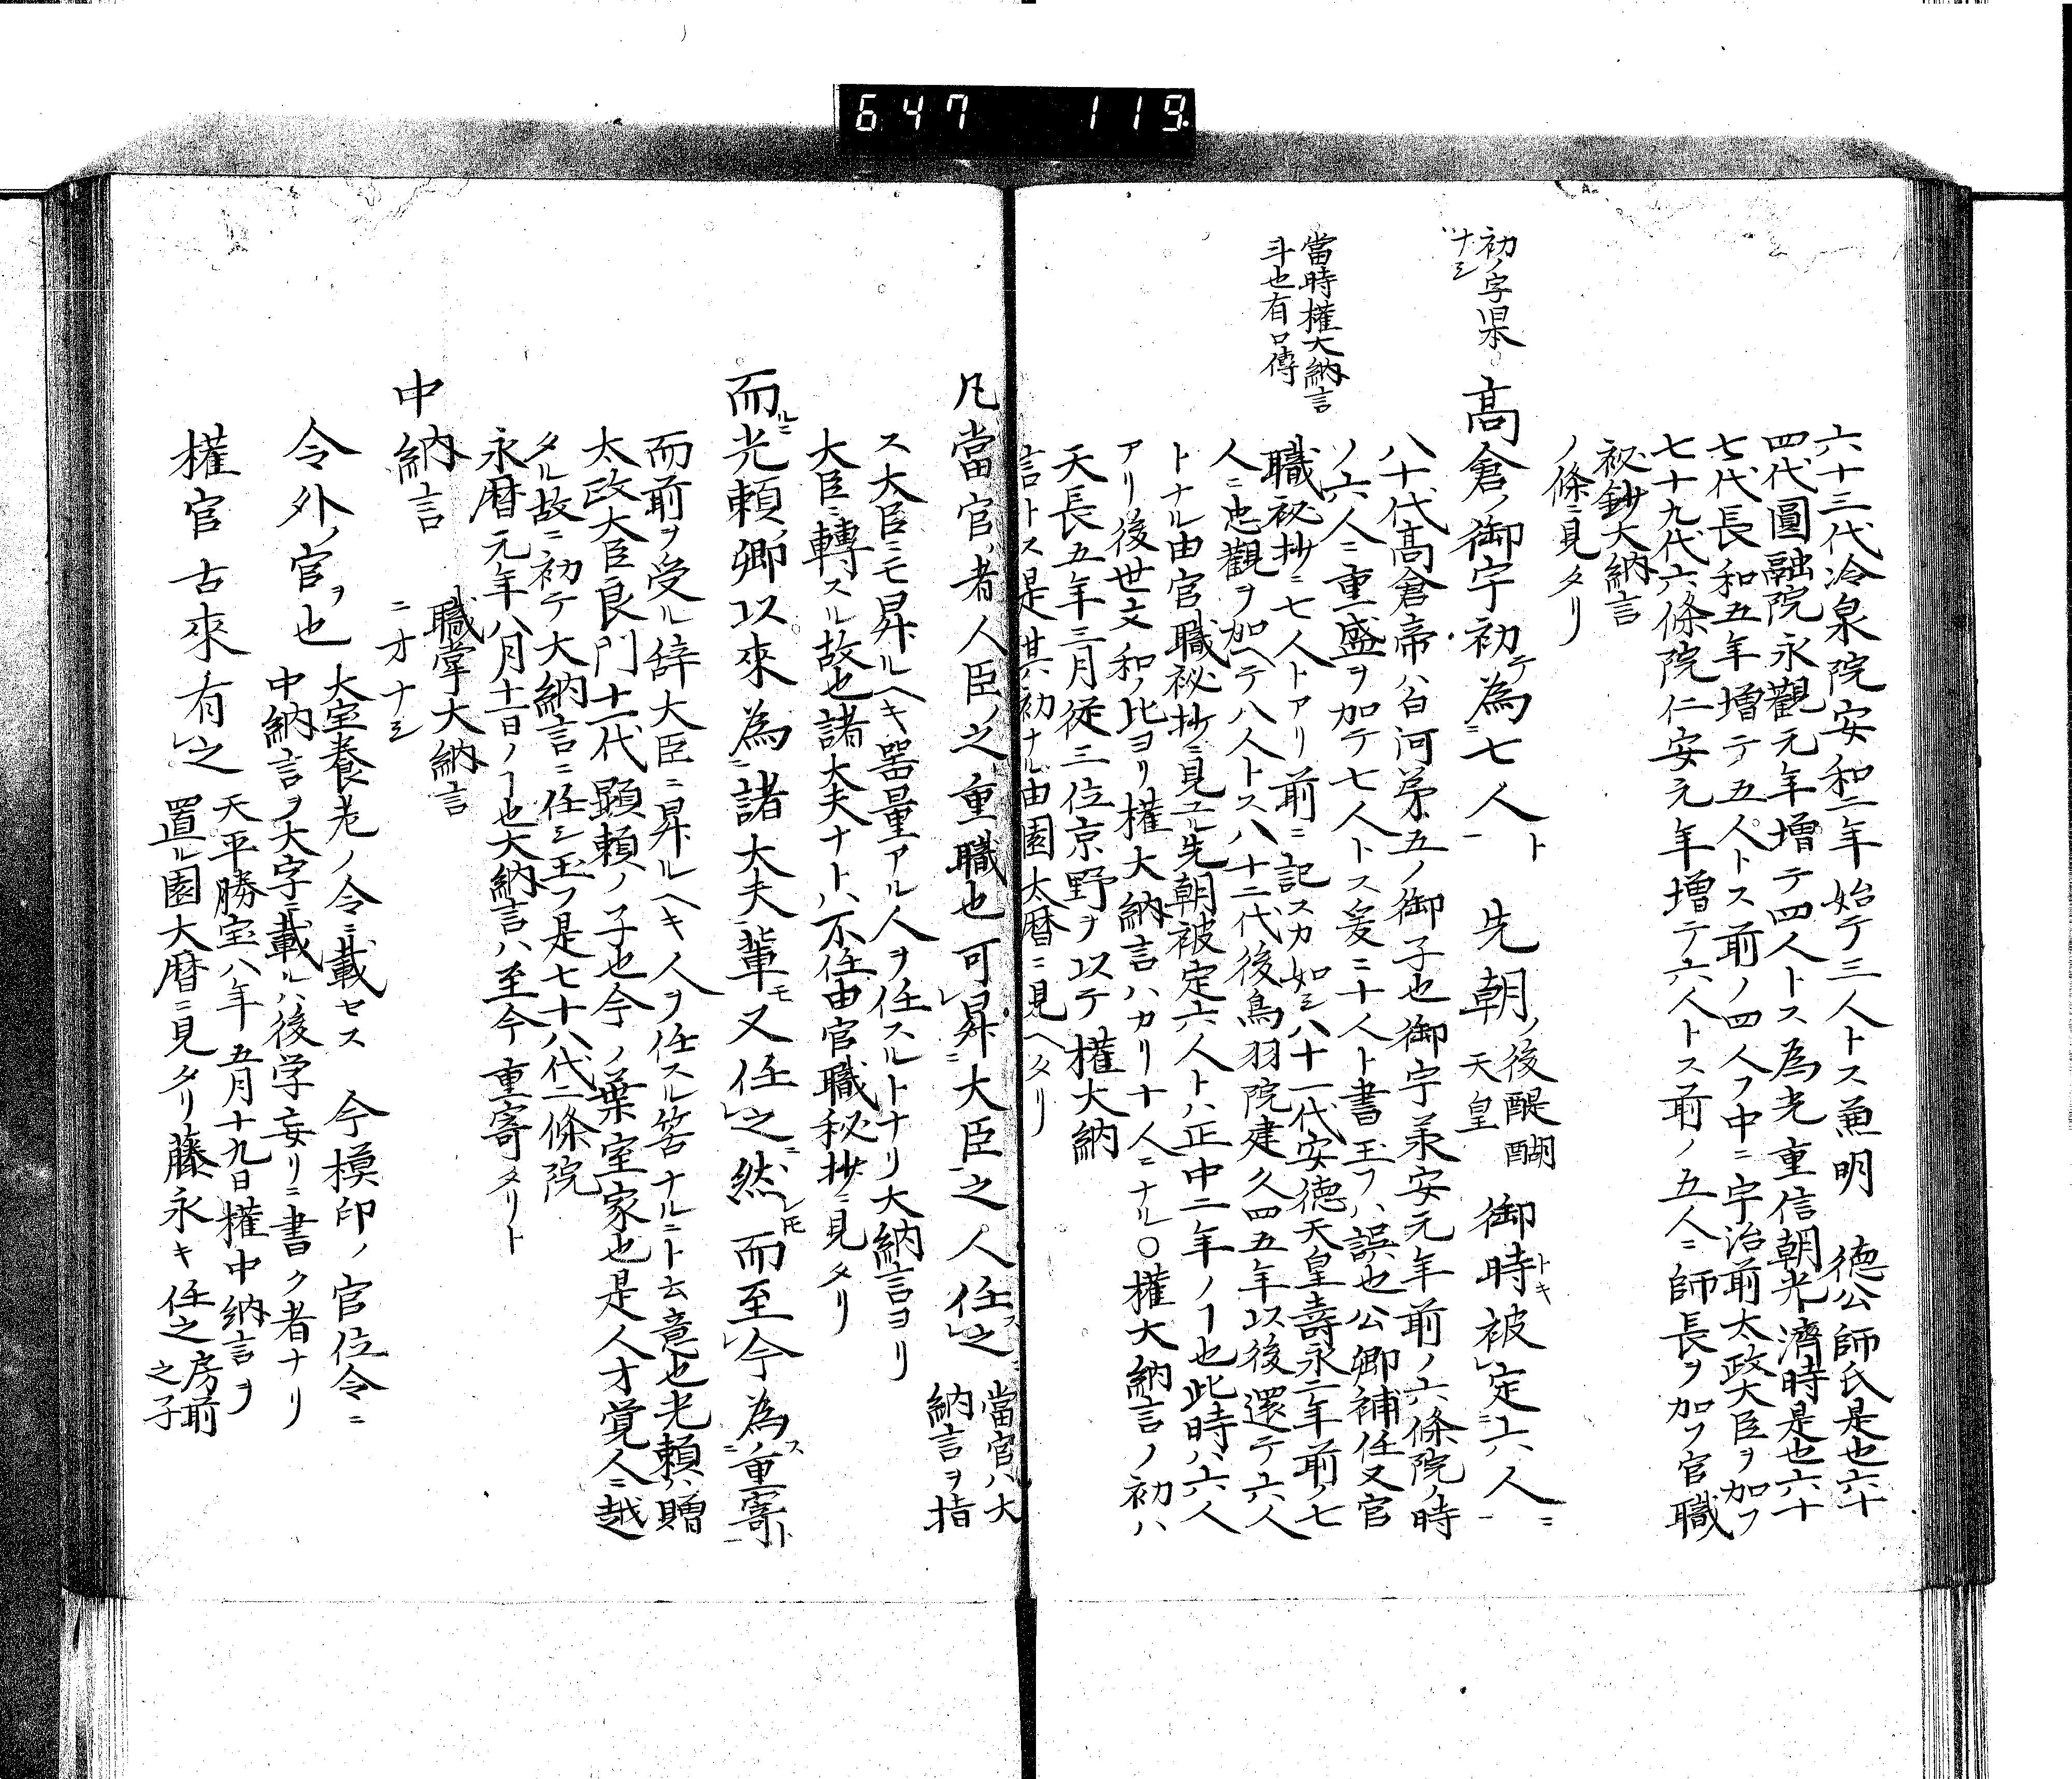 647 119.
六十三代冷泉院安和二年始テ三人トス兼明 徳公師氏是也六十
四代圓融院永觀元年増テ四人トス為光重信朝光濟時是也六十
七代長和五年増テ五人トス前ノ四人フ中ニ宇治前太政大臣ヲ加フ
七十九代六條院仁安元年増テ六人トス前ノ五人ニ師長ヲ加フ官職
祕鈔大納言
ノ條ニ見タリ
初ノ字県
ナシ
高倉ノ御宇初テ為七人ト 先朝ノ後醍醐天皇 御時トキ被定六人ニ
八十代高倉帝ハ白河第五ノ御子也御宇承安元年前ノ六條院ノ時
ノ六人ニ重盛ヲ加テ七人トス爰ニ十人ト書玉フハ誤也公卿補任又官
當時權大納言
斗也有口傳
職祕抄ニ七人トアリ前ニ記スカ如シ八十一代安徳天皇壽永二年前ノ七
人ニ忠觀ヲ加ヘテ八人トス八十二代後鳥羽院建久四五年以後還テ六人
トナル由官職祕抄ニ見ユル先朝被定六人トハ正中二年ノヿ也此時ハ六人
アリ後世文和ノ比ヨリ權大納言ハカリ十人ニナル〇權大納言ノ初ハ
天長五年三月従三位京野ヲ以テ權大納
言トス是其初ナル由園太暦ニ見ヘタリ
凡當官ノ者人臣ノ之重職也可昇ニ大臣之人任ス之 當官ハ大納言ヲ指
ス大臣ニモ昇ルヘキ器量アル人ヲ任スルトナリ大納言ヨリ
大臣ニ轉スル故也諸大夫ナトハ不任由官職秘抄ニ見タリ
而ルニ光頼ノ卿以來為諸大夫輩モ又任之ニ然レ𪜈而至今為ス重寄ト
而前ヲ受ル辞大臣ニ昇ルヘキ人ヲ任スル筈ナルニト云意也光頼ハ贈
太政大臣良門十一代顕頼ノ子也今ノ葉室家也是人才覚人ニ越
タル故ニ初テ大納言ニ任シ玉フ是七十八代二條院
永暦元年八月十一日ノヿ也大納言ハ至今重寄タリト
中納言 職掌大納言ニオナシ
令外ノ官ヲ也 大宝養老ノ令ニ載セス 今模印ノ官位令ニ
中納言ヲ大字ニ載ルハ後学妄リニ書ク者ナリ
權官古來有之 天平勝宝八年五月十九日權中納言ヲ
置ル園大暦ニ見タリ藤永キ任之房前之子